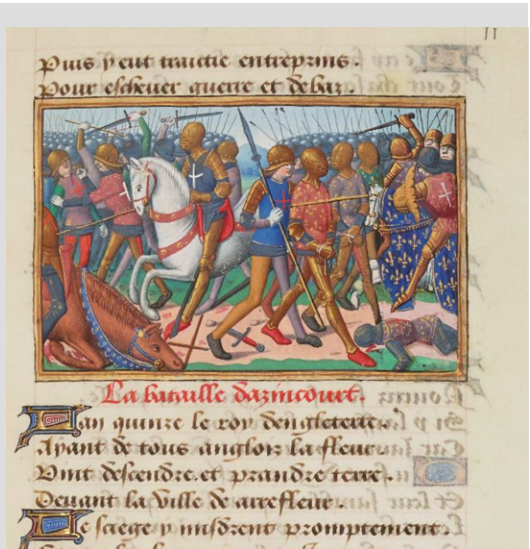 II
Puis y eut traictie entreprins.
Pour escheuer guerre et debaz.
La bataille dazincourt.
Lan quinze le roy dengleterre.
Ayant de tous anglois la fleur
Vint descendre et prandre terre.
Deuant la ville de arrefleur
Le siege y misdrent promptement.